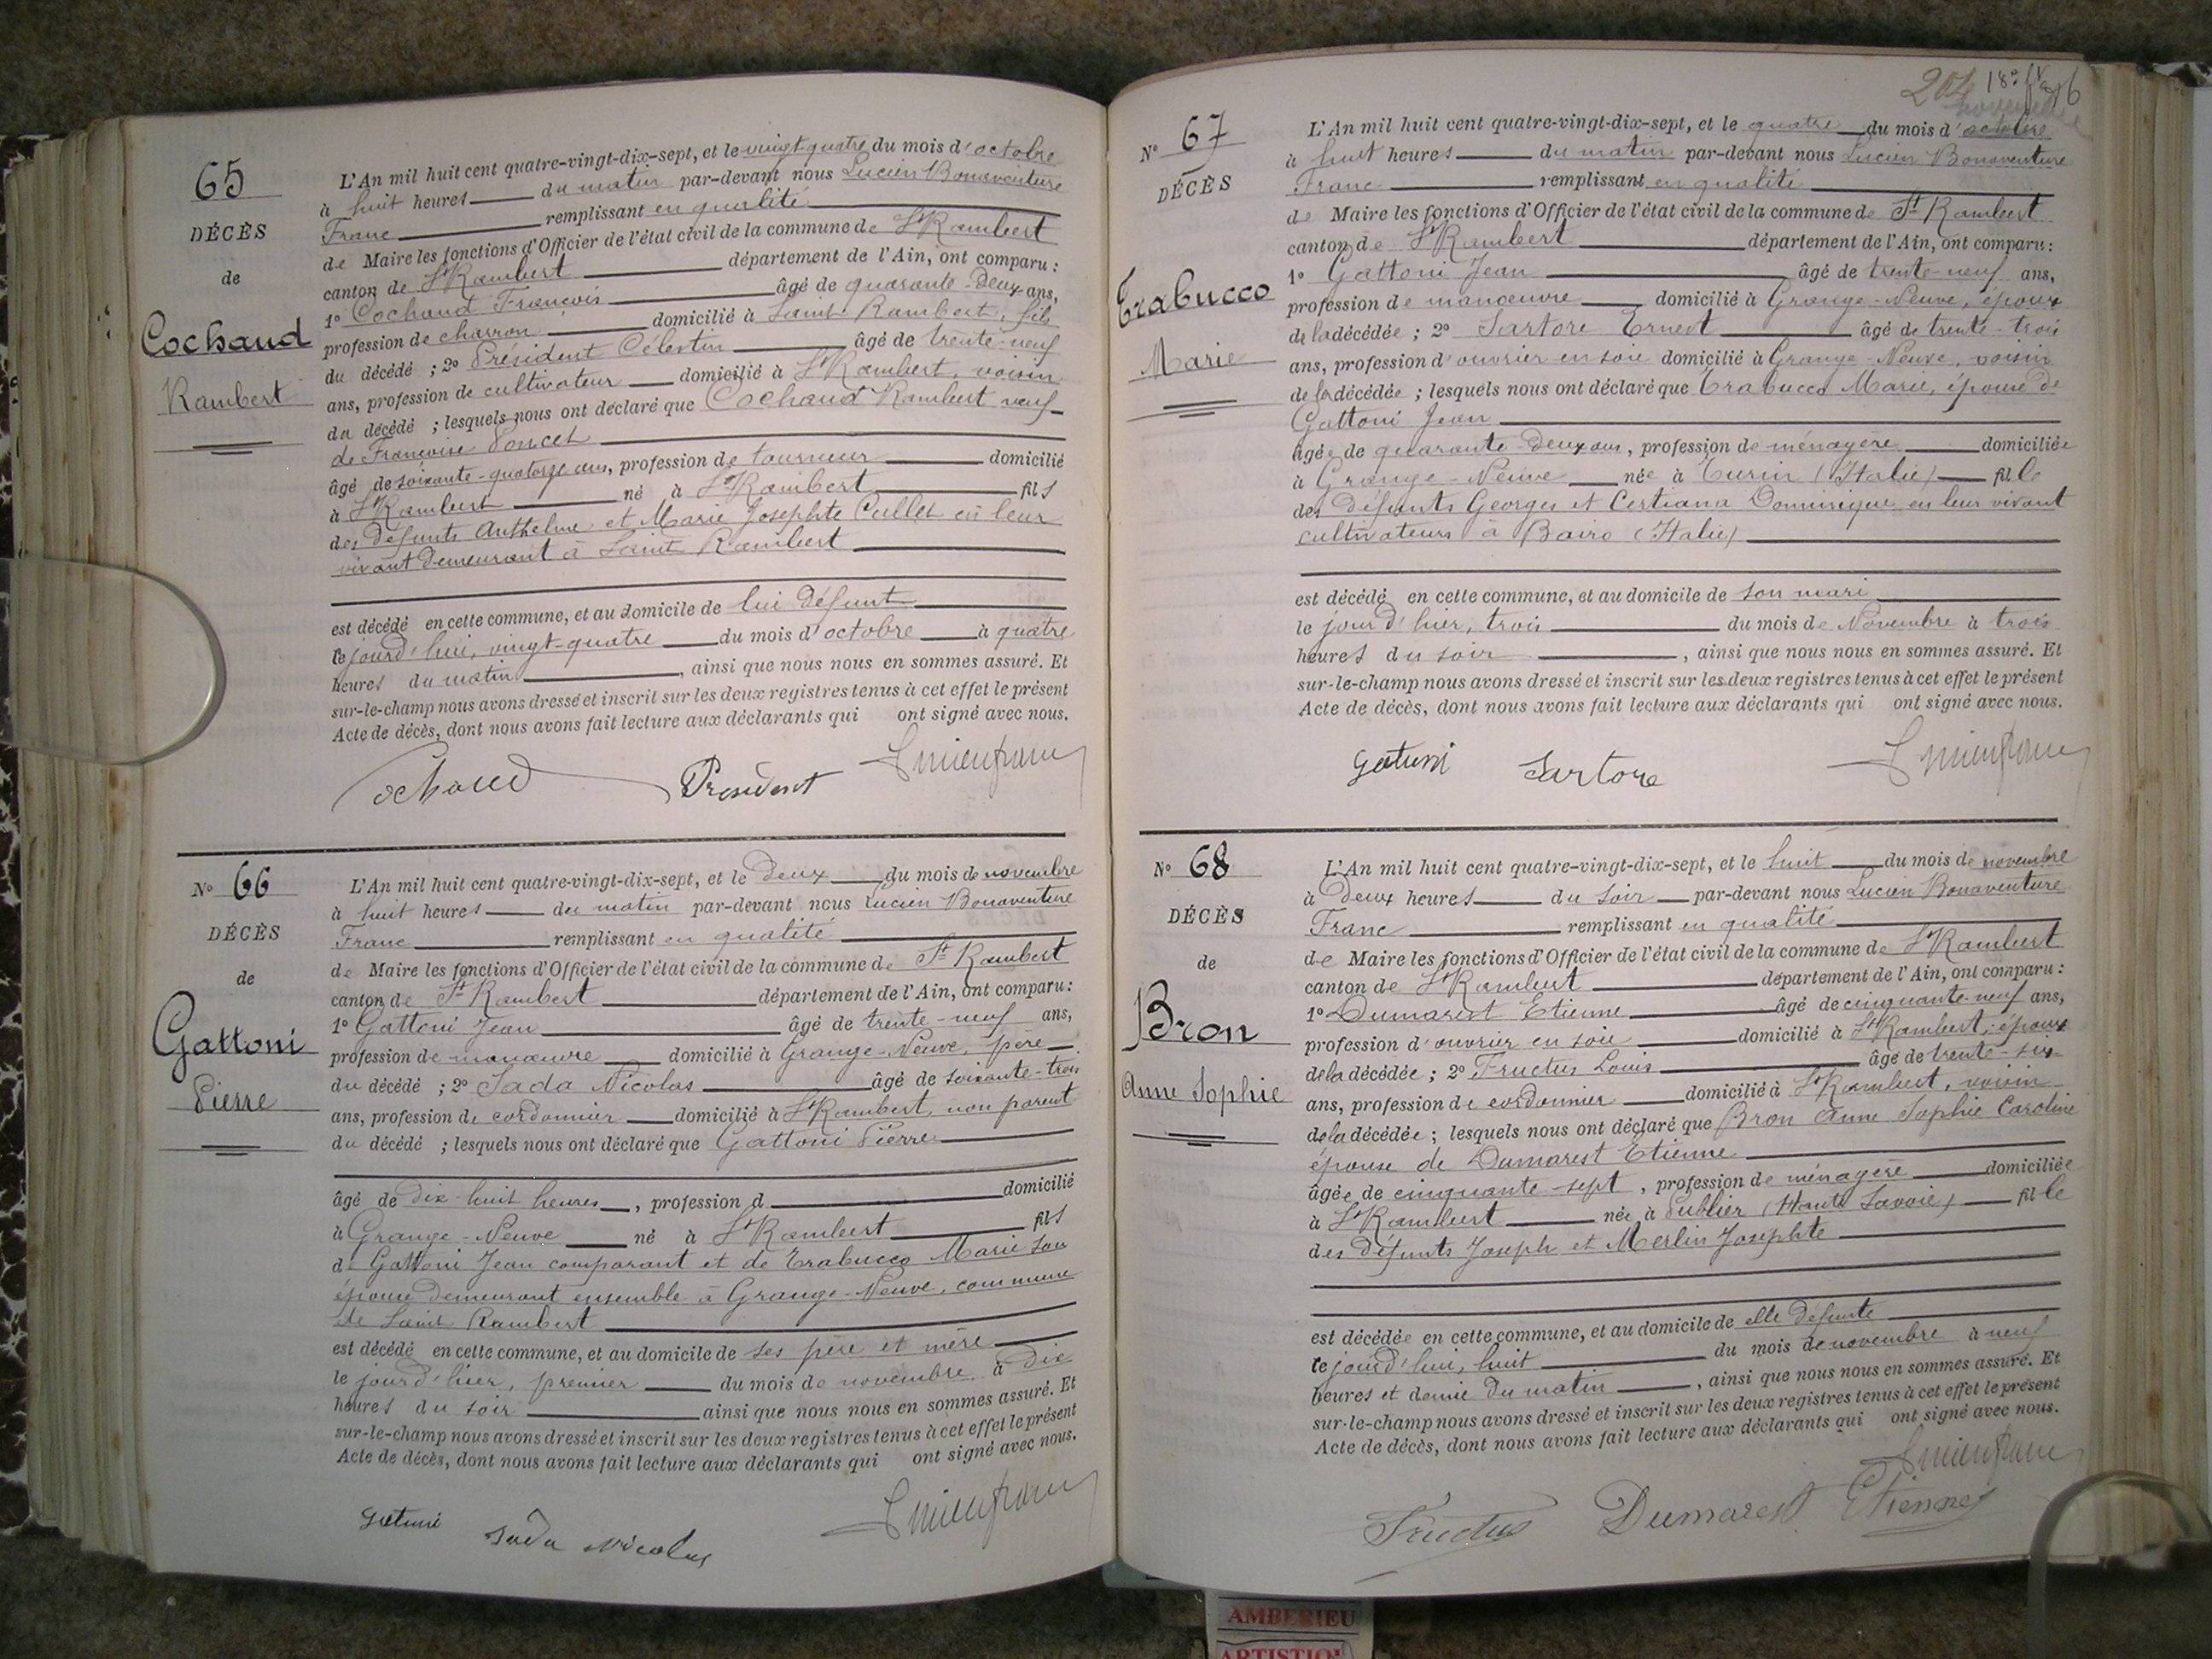 65
DÉCÈS
de
Cochaud
Rambert
L'An mil huit cent quatre-vingt-dix-sept, et le vingt-quatre du mois d'octobre
à huit heures du matin par-devant nous Lucien Bonaventure
Franc remplissant en qualité
de Maire les fonctions d'Officier de l'état civil de la commune de St Rambert
canton de St Rambert département de l'Ain, ont comparu :
1º Cochaud François âgé de quarante-deux ans,
profession de charron domicilié à Saint-Rambert, fils
du décédé ; 2º Président Célestin âgé de trente-neuf
ans, profession de cultivateur domicilié à St Rambert, voisin
du décédé ; lesquels nous ont déclaré que Cochaud Rambert veuf
de Françoise Poncet
âgé de soixante-quatorze ans, profession de tourneur domicilié
à St Rambert né à St Rambert fils
des défunts Anthelme et Marie Josephte Cullet en leur
vivant demeurant à Saint Rambert
est décédé en cette commune, et au domicile de lui défunt
le jourd'hui, vingt-quatre du mois d'octobre à quatre
heures du matin, ainsi que nous nous en sommes assuré. Et
sur-le-champ nous avons dressé et inscrit sur les deux registres tenus à cet effet le présent
Acte de décès, dont nous avons fait lecture aux déclarants qui ont signé avec nous.
Cochaud Président Lucien franc
Nº 66
DÉCÈS
de
Gattoni
Pierre
L'An mil huit cent quatre-vingt-dix-sept, et le deux du mois de novembre
à huit heures du matin par-devant nous Lucien Bonaventure
Franc remplissant en qualité
de Maire les fonctions d'Officier de l'état civil de la commune de St Rambert
canton de St Rambert département de l'Ain, ont comparu :
1º Gattoni Jean âgé de trente-neuf ans,
profession de manœuvre domicilié à Grange-Neuve, père
du décédé ; 2º Sada Nicolas âgé de soixante-trois
ans, profession de cordonnier domicilié à St Rambert, non parent
du décédé ; lesquels nous ont déclaré que Gattoni Pierre
âgé de dix-huit heures, profession d domicilié
à Grange-Neuve né à St Rambert fils
de Gattoni Jean comparant et de Trabucco Marie son
épouse demeurant ensemble à Grange-Neuve, commune
de Saint Rambert
est décédé en cette commune, et au domicile de ses père et mère
le jourd'hier, premier du mois de novembre à dix
heures du soir ainsi que nous nous en sommes assuré. Et
sur-le-champ nous avons dressé et inscrit sur les deux registres tenus à cet effet le présent
Acte de décès, dont nous avons fait lecture aux déclarants qui ont signé avec nous.
Gatuni Sada Nicolas Lucien franc
204 18e
novembre
Nº 67
DÉCÈS
Trabucco
Marie
L'An mil huit cent quatre-vingt-dix-sept, et le quatre du mois d'octobre
à huit heures du matin par-devant nous Lucien Bonaventure
Franc remplissant en qualité
de Maire les fonctions d'Officier de l'état civil de la commune de St Rambert
canton de St Rambert département de l'Ain, ont comparu :
1º Gattoni Jean âgé de trente-neuf ans,
profession de manœuvre domicilié à Grange-Neuve, époux
de la décédée ; 2º Sartore Ernest âgé de trente-trois
ans, profession d'ouvrier en soie domicilié à Grange-Neuve, voisin
de la décédée ; lesquels nous ont déclaré que Trabucco Marie, épouse de
Gattoni Jean
âgée de quarante-deux ans, profession de ménagère domiciliée
à Grange-Neuve née à Turin (Italie) fille
des défunts Georges et Certiana Dominique en leur vivant
cultivateurs à Bairo (Italie)
est décédé en cette commune, et au domicile de son mari
le jourd'hier, trois du mois de Novembre à trois
heures du soir, ainsi que nous nous en sommes assuré. Et
sur-le-champ nous avons dressé et inscrit sur les deux registres tenus à cet effet le présent
Acte de décès, dont nous avons fait lecture aux déclarants qui ont signé avec nous.
Gatuni Sartore Lucien franc
Nº 68
DÉCÈS
de
Bron
Anne Sophie
L'An mil huit cent quatre-vingt-dix-sept, et le huit du mois de novembre
à deux heures du soir par-devant nous Lucien Bonaventure
Franc remplissant en qualité
de Maire les fonctions d'Officier de l'état civil de la commune de St Rambert
canton de St Rambert département de l'Ain, ont comparu :
1º Dumarest Etienne âgé de cinquante-neuf ans,
profession d'ouvrier en soie domicilié à St Rambert, époux
de la décédée ; 2º Fructus Louis âgé de trente-six
ans, profession de cordonnier domicilié à St Rambert, voisin
de la décédée ; lesquels nous ont déclaré que Bron Anne Sophie Caroline
épouse de Dumarest Etienne
âgée de cinquante-sept, profession de ménagère domiciliée
à St Rambert née à Publier (Haute Savoie) fille
des défunts Joseph et Merlin Josephte
est décédée en cette commune, et au domicile de elle défunte
le jourd'hui, huit du mois de novembre à neuf
heures et demie du matin, ainsi que nous nous en sommes assuré. Et
sur-le-champ nous avons dressé et inscrit sur les deux registres tenus à cet effet le présent
Acte de décès, dont nous avons fait lecture aux déclarants qui ont signé avec nous.
Lucien franc
Fructus Dumarest Etienne
AMBERIEU